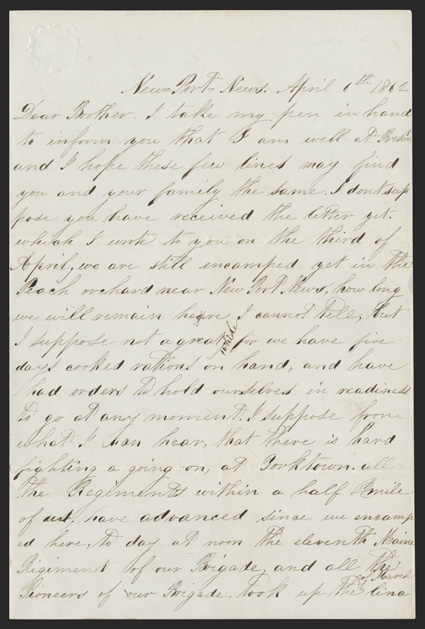 New=Port=News. April 6th 1862
Dear Brother. I take my pen in hand
to inform you that I am well at Present
and I hope these few lines may find
you and your family the same. I don't sup
pose you have received the letter yet.
which I wrote to you on the third of
April, we are still encamped yet in the
Peach orchard near New Port News, how long
we will remain heare I cannot tell, but
I suppose not a great while for we have five
days cooked rations on hand, and have
had orders to hold ourselves in readiness
to go at any moment. I suppose from
what I can hear, that there is hard
fighting a going on, at Yorktown. all
the Regiments within a half mile
of us, have advanced since we encamp
ed here, to day at noon the eleventh Maine
Regiment of our Brigade, and all the
Pioneers of our Brigade, took up the line of March